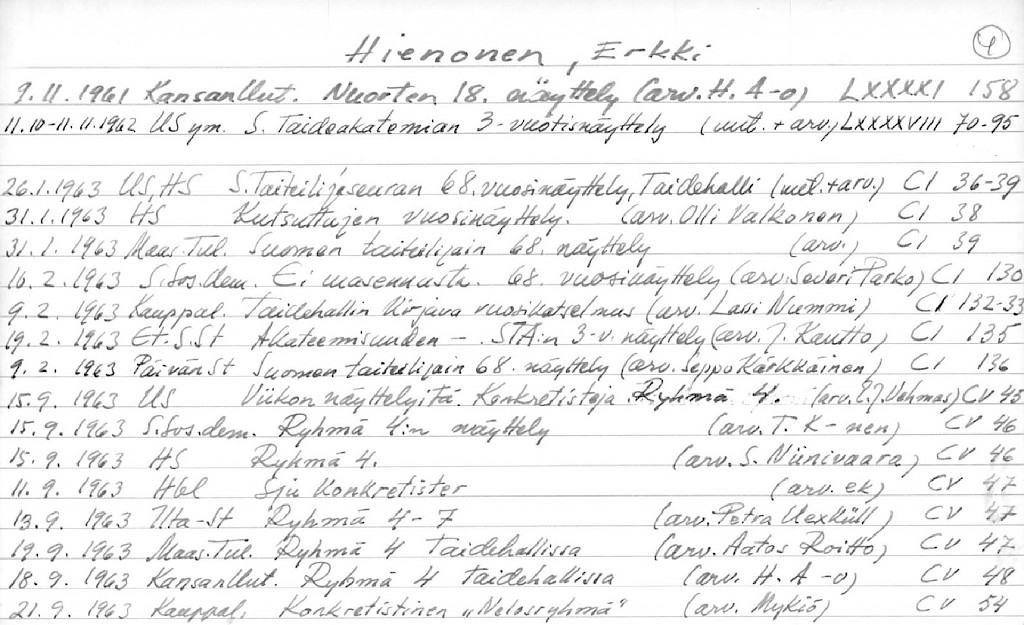 4
Hienonen, Erkki
9.11.1961 Kansan Uut. Nuorten 18. näyttely (arv. H. A-o) LXXXXI 158
11.10-11.11.1962 US ym. S. Taideakatemian 3-vuotisnäyttely (uut. + arv.) LXXXXVIII 70-95
26.1.1963 US, HS S. Taiteilijaseuran 68. vuosinäyttely, Taidehalli (uut. + arv.) CI 36-39
31.1.1963 HS Kutsuttujen vuosinäyttely. (arv. Olli Valkonen) CI 38
31.1.1963 Maas. Tul. Suomen taiteilijain 68. näyttely (arv.) CI 39
16.2.1963 S. Sos.dem. Ei masennusta. 68. vuosinäyttely (arv. Severi Parko) CI 130
9.2.1963 Kauppal. Taidehallin kirjava vuosikatselmus (arv. Lassi Nummi) CI 132-33
19.2.1963 Et.S.St Akateemisuuden - STA:n 3-v. näyttely (arv. J. Kautto) CI 135
9.2.1963 PäivänSt Suomen taiteilijain 68. näyttely (arv. Seppo Kärkkäinen) CI 136
15.9.1963 US Viikon näyttelyitä. Konkretisteja Ryhmä 4. (arv. E.J. Vehmas) CV 45
15.9.1963 S.Sos.dem. Ryhmä 4:n näyttely (arv. T. K-nen) CV 46
15.9.1963 HS Ryhmä 4. (arv. S. Niinivaara) CV 46
11.9.1963 Hbl Sju konkretister (arv. ek) CV 47
13.9.1963 Ilta-St Ryhmä 4-7 (arv. Petra Uexküll) CV 47
19.9.1963 Maas.Tul. Ryhmä 4 Taidehallissa (arv. Aatos Roitto) CV 47
18.9.1963 Kansan Uut. Ryhmä 4 Taidehallissa (arv. H. A-o) CV 48
21.9.1963 Kauppal. Konkretistinen "Nelosryhmä" (arv. Mykiö) CV 54